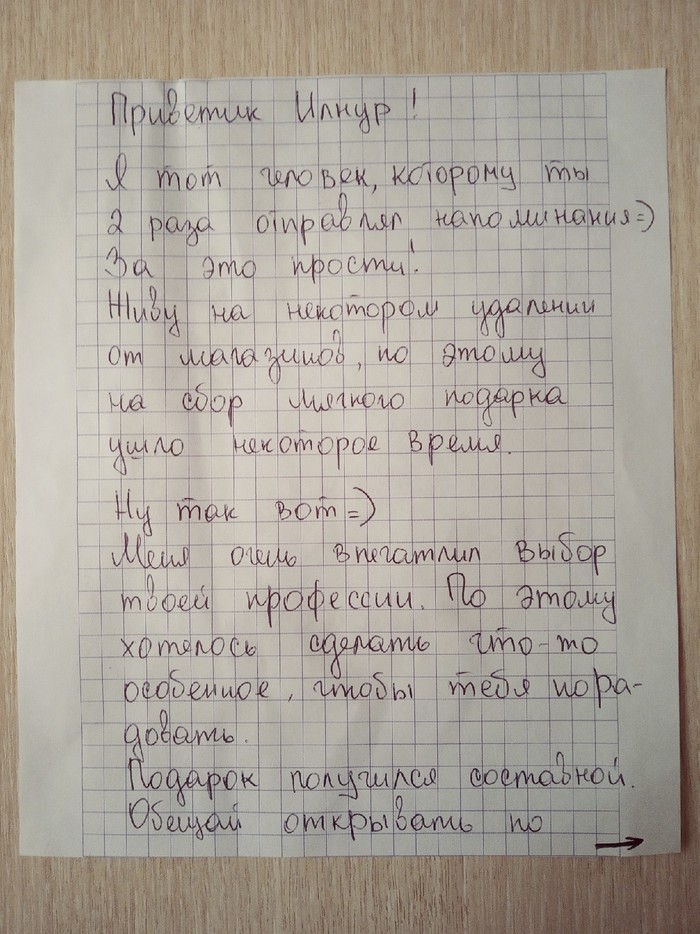 Приветик Илнур!
Я тот человек, которому ты
2 раза отправлял напоминания=)
За это прости!
Живу на некотором удалении
от магазинов, по этому
на сбор мягкого подарка
ушло некоторое время.
Ну так вот=)
Меня очень впечатлил выбор
твоей профессии. По этому
хотелось сделать что-то
особенное, чтобы тебя пора-
довать.
Подарок получился составной.
Обещай открывать по
→